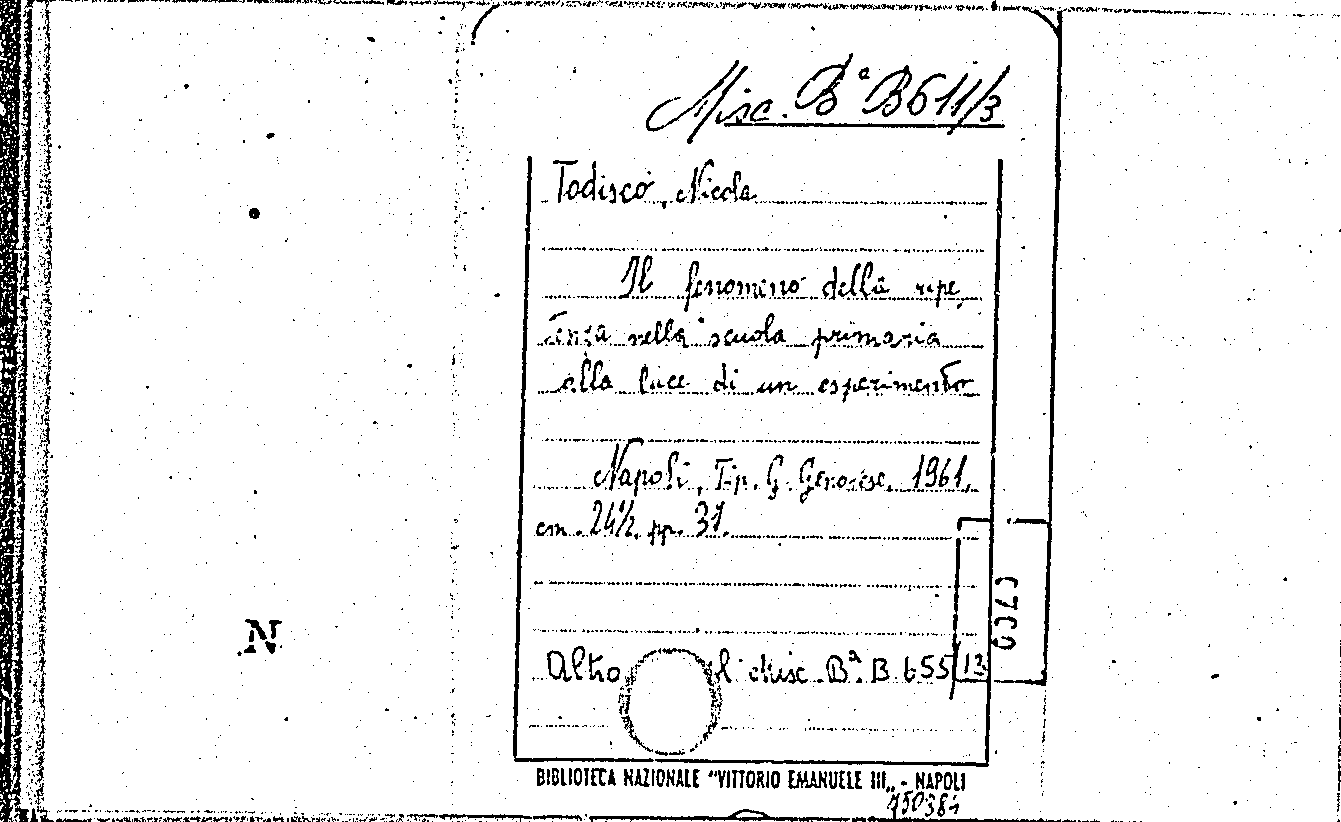 Misc. Bª B611/3
Todisco, Nicola
Il fenomeno della ripe
tenza nella scuola primaria
alla luce di un esperimento
Napoli, Tip. G. Genovese, 1961.
cm. 24½, pp. 31.
Altro Misc. Bª. B 655/13
N
BIBLIOTECA NAZIONALE "VITTORIO EMANUELE III„ - NAPOLI